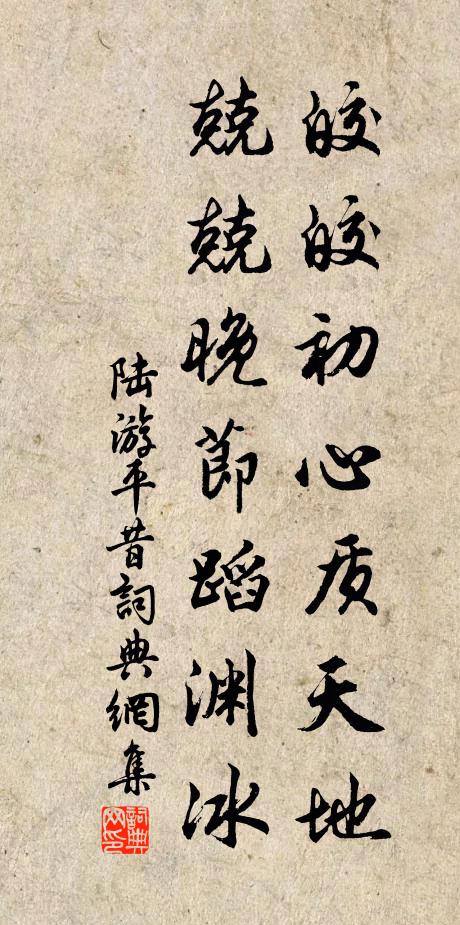 皎皎初心质天地
兢兢晚節蹈渊冰
陆游平昔詞典網集
詞典网印